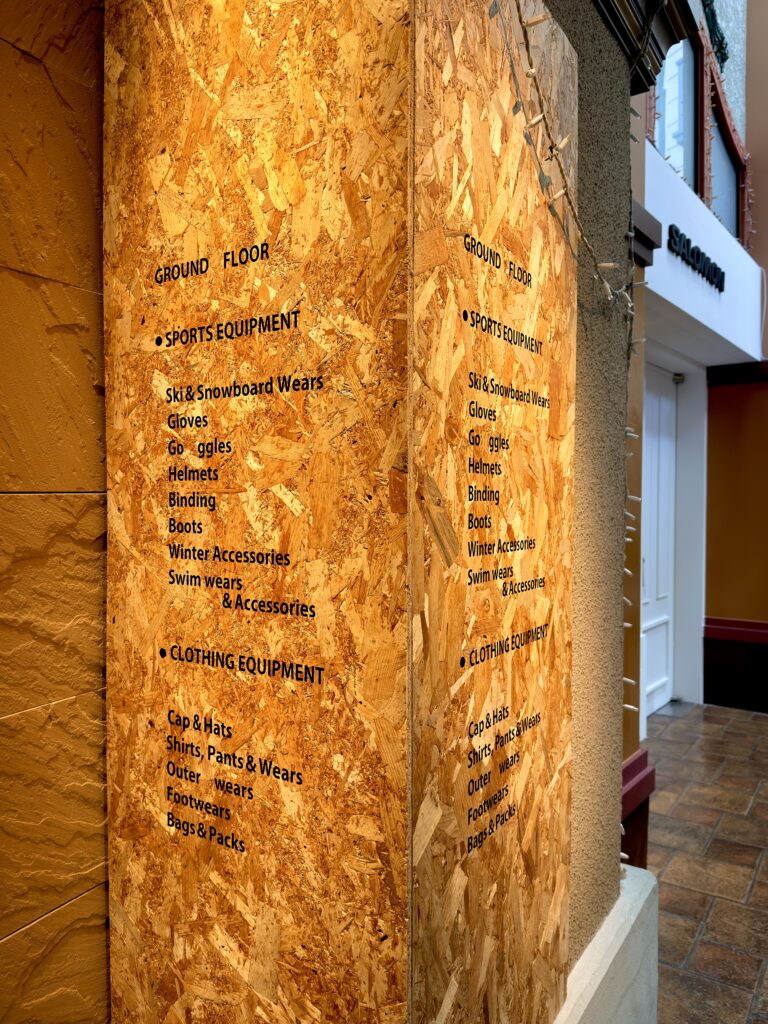 GROUND FLOOR
• SPORTS EQUIPMENT
Ski & Snowboard Wears
Gloves
Go ggles
Helmets
Binding
Boots
Winter Accessories
Swim wears
& Accessories
• CLOTHING EQUIPMENT
Cap & Hats
Shirts, Pants & Wears
Outer wears
Footwears
Bags & Packs
GROUND FLOOR
• SPORTS EQUIPMENT
Ski & Snowboard Wears
Gloves
Go ggles
Helmets
Binding
Boots
Winter Accessories
Swim wears
& Accessories
• CLOTHING EQUIPMENT
Cap & Hats
Shirts, Pants & Wears
Outer wears
Footwears
Bags & Packs
SALOMON